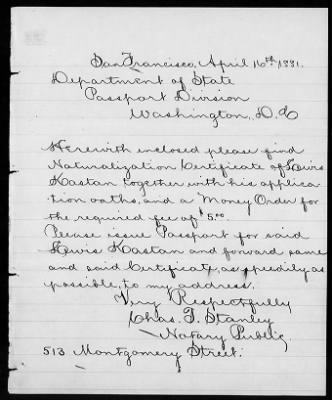 San Francisco, April 16th 1881.
Department of State
Passport Division
Washington, D.C
Herewith inclosed please find
Naturalization Certificate of Lewis
Kastan together with his applica-
tion oaths, and a Money Order for
the required fee of $5.00
Please issue Passport for said
Lewis Kastan and forward same
and said Certificate, as speedily as
possible, to my address.
Very Respectfully
Chas. T. Stanley
Notary Public,
513 Montgomery Street.